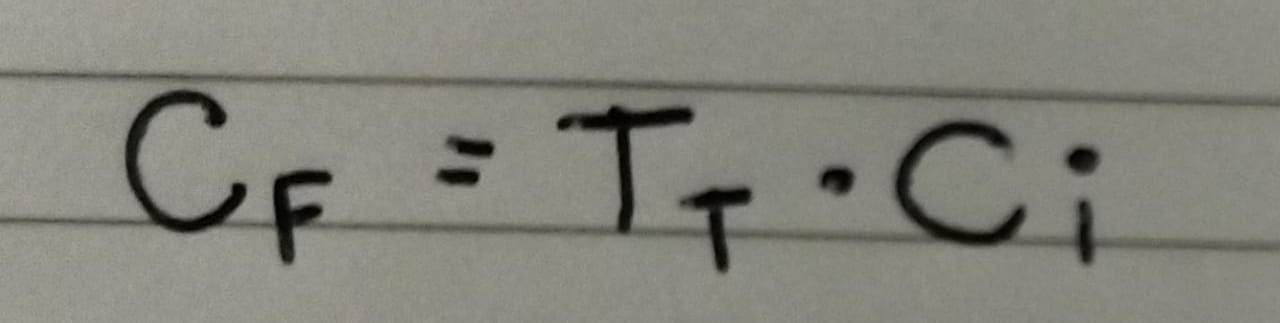 C_F = T_T · C_i